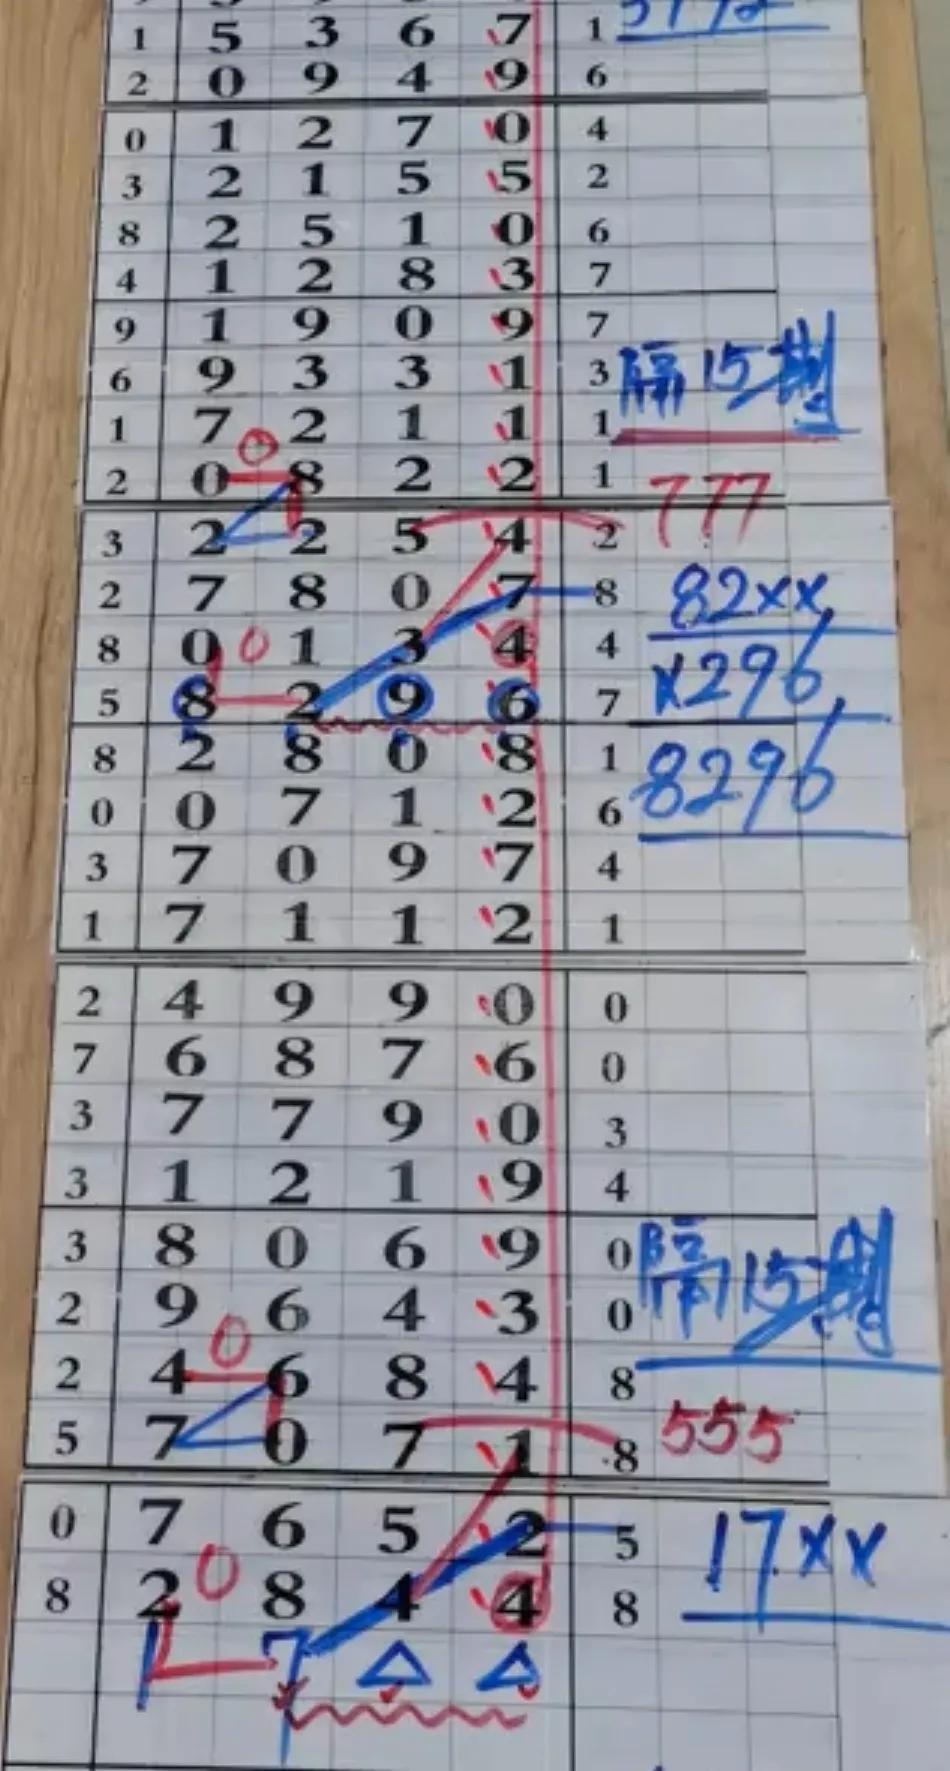 1 5 3 6 7 1
2 0 9 4 9 6
0 1 2 7 0 4
3 2 1 5 5 2
8 2 5 1 0 6
4 1 2 8 3 7
9 1 9 0 9 7
6 9 3 3 1 3 隔15期
1 7 2 1 1 1
0
2 0 8 2 2 1 777
3 2 2 5 4 2
2 7 8 0 7 8 82xx
8 0 0 1 3 4 4 x296
5 8 2 9 6 7
8 2 8 0 8 1 8296
0 0 7 1 2 6
3 7 0 9 7 4
1 7 1 1 2 1
2 4 9 9 0 0
7 6 8 7 6 0
3 7 7 9 0 3
3 1 2 1 9 4
3 8 0 6 9 0 隔15期
2 9 6 4 3 0
0
2 4 6 8 4 8
5 7 0 7 1 8 555
0 7 6 5 2 5 17xx
0
8 2 8 4 4 8
1 7 △ △